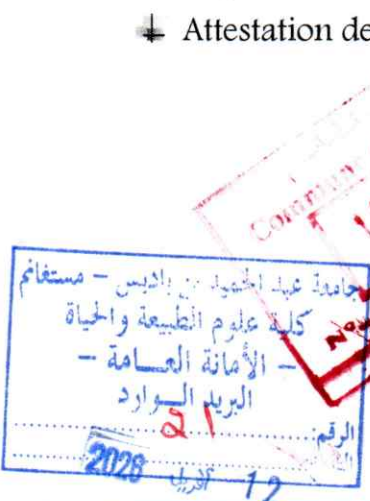 Attestation de
Commune
جامعة عبد الحميد بن باديس – مستغانم
كلية علوم الطبيعة والحياة
– الأمانة العــامة –
البريد الــوارد
الرقم: 21
12 أفريل 2026